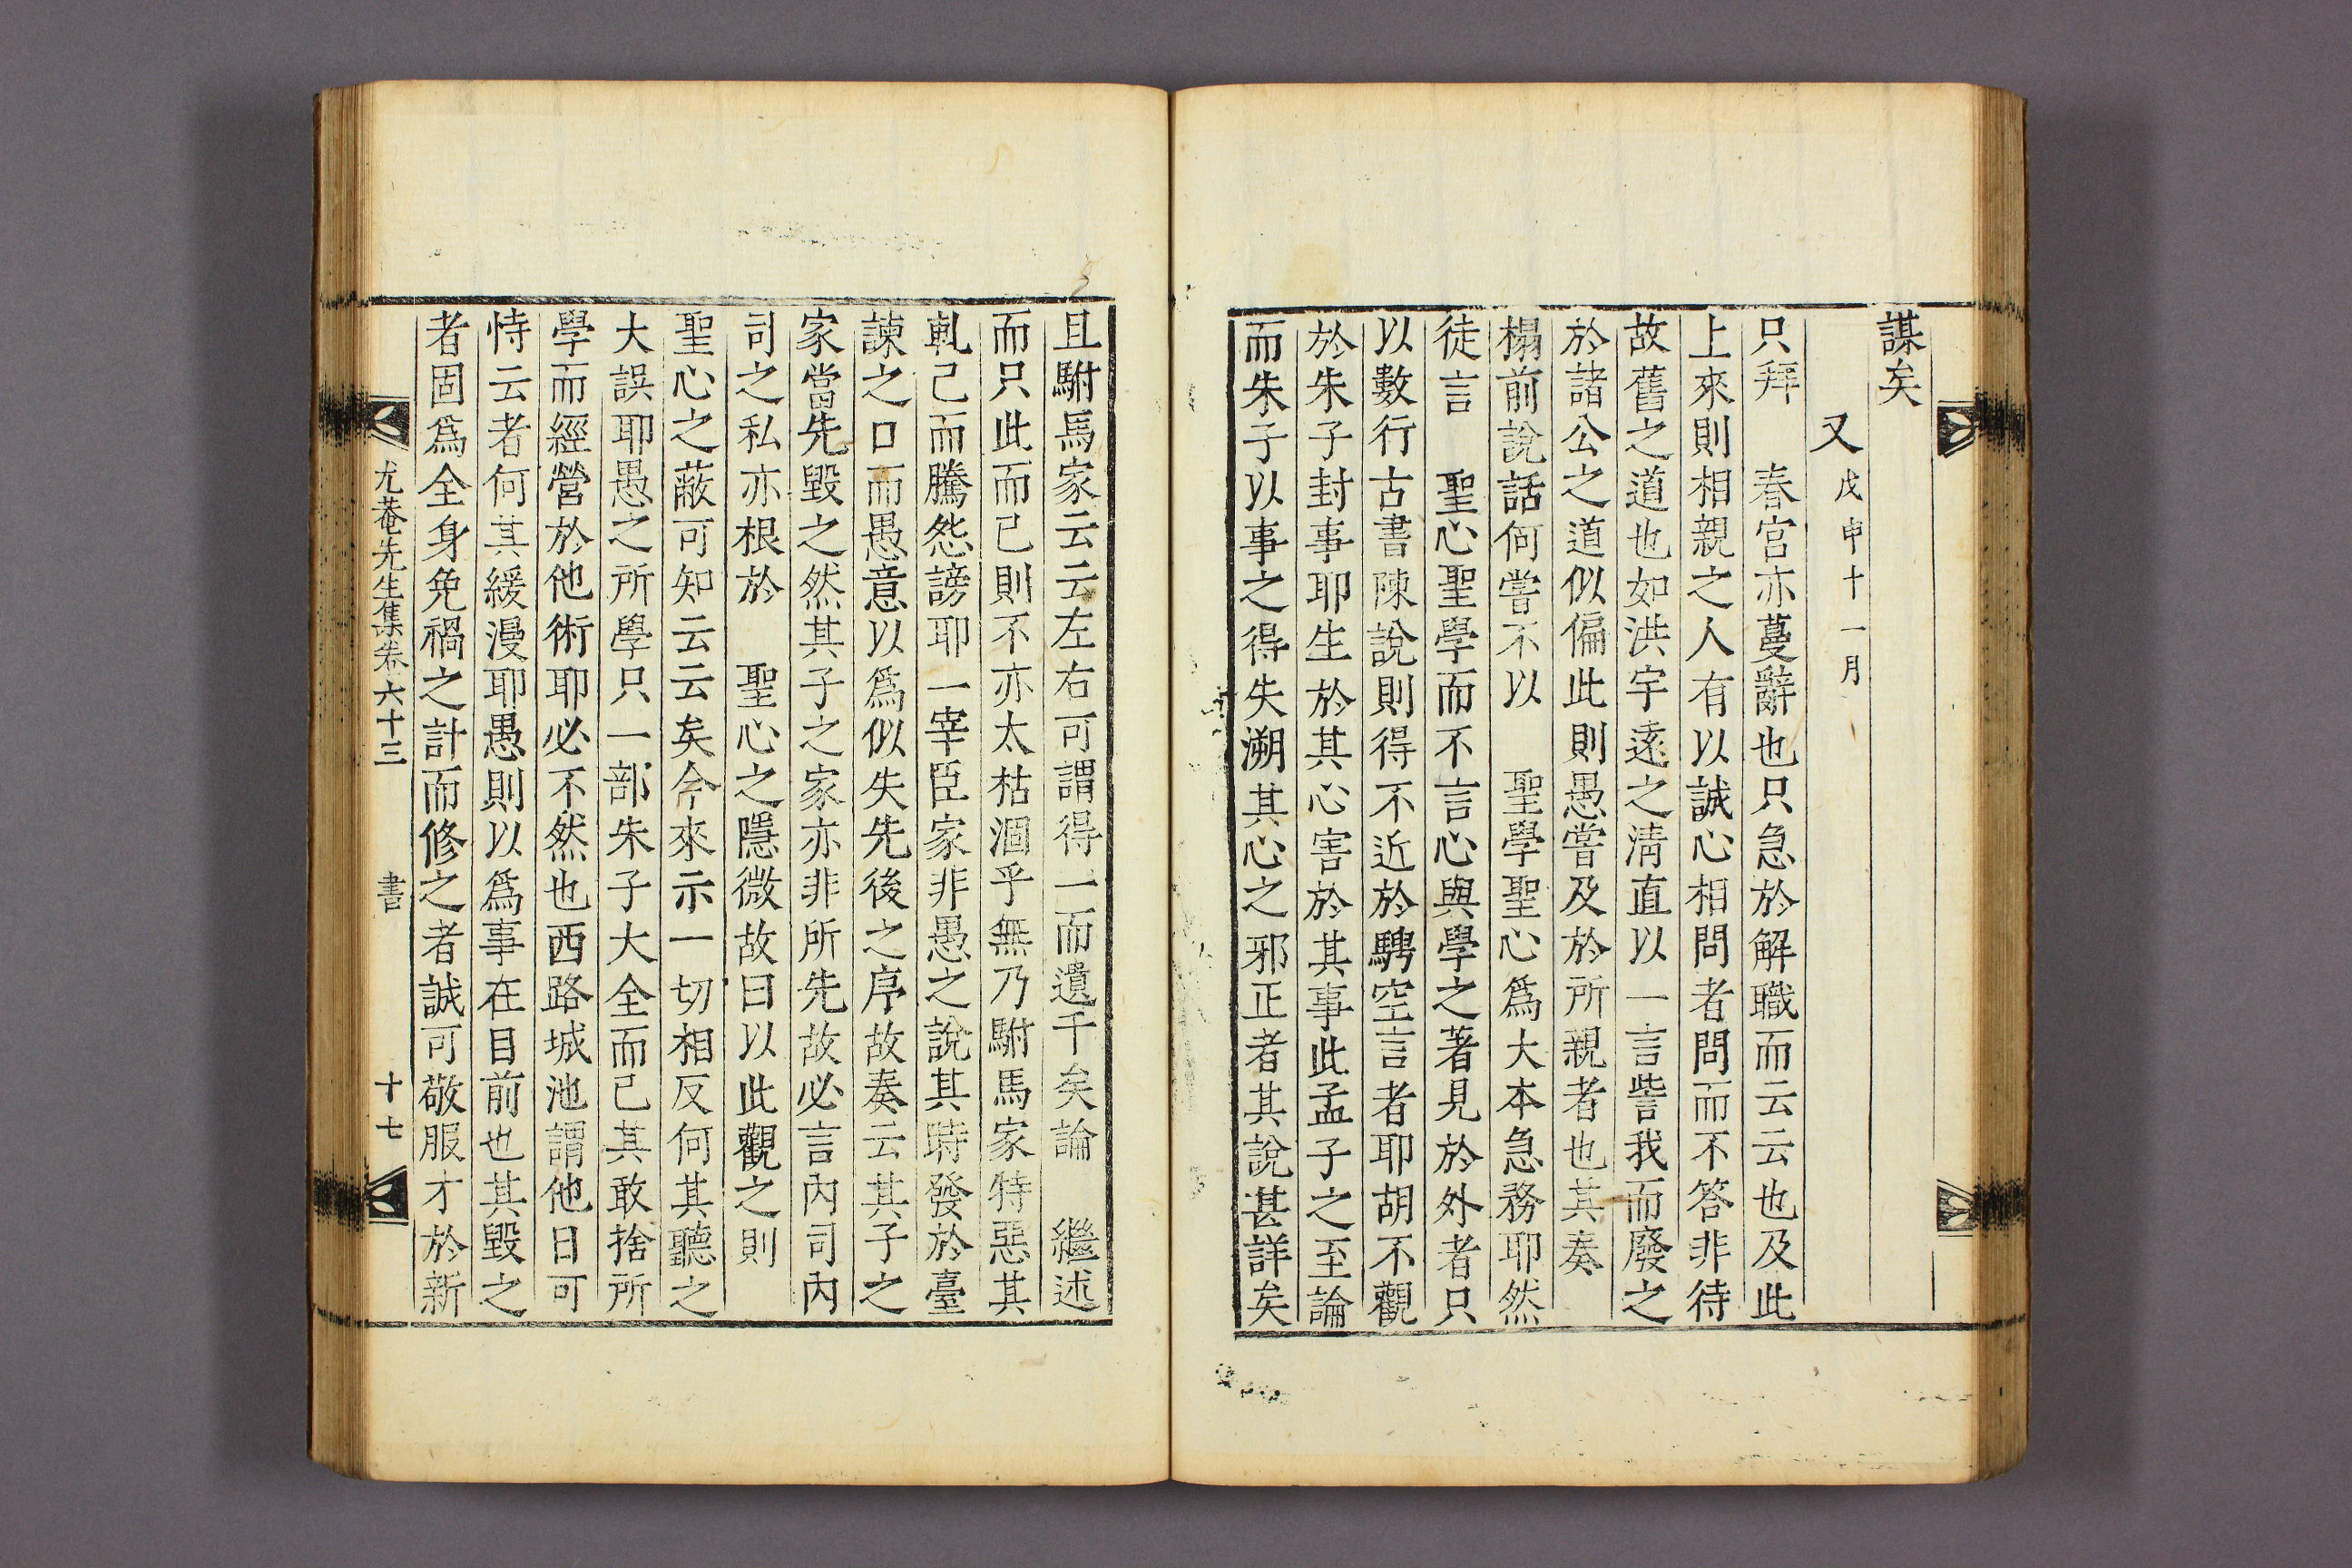 謀矣
又 戊申十一月
只拜 春宮亦蔓辭也只急於解職而云云也及此
上來則相親之人有以誠心相問者問而不答非待
故舊之道也如洪宇遠之淸直以一言訾我而廢之
於諸公之道似偏此則愚嘗及於所親者也其奏
榻前說話何嘗不以 聖學聖心爲大本急務耶然
徒言 聖心聖學而不言心與學之著見於外者只
以數行古書陳說則得不近於騁空言者耶胡不觀
於朱子封事耶生於其心害於其事此孟子之至論
而朱子以事之得失溯其心之邪正者其說甚詳矣
且駙馬家云云左右可謂得一而遺千矣論 繼述
而只此而已則不亦太枯涸乎無乃駙馬家特惡其
軋己而騰怨謗耶一宰臣家非愚之說其時發於臺
諫之口而愚意以爲似失先後之序故奏云其子之
家當先毀之然其子之家亦非所先故必言內司內
司之私亦根於 聖心之隱微故曰以此觀之則
聖心之蔽可知云云矣今來示一切相反何其聽之
大誤耶愚之所學只一部朱子大全而已其敢捨所
學而經營於他術耶必不然也西路城池謂他日可
恃云者何其緩漫耶愚則以爲事在目前也其毀之
者固爲全身免禍之計而修之者誠可敬服才於新
尤菴先生集卷六十三 書 十七